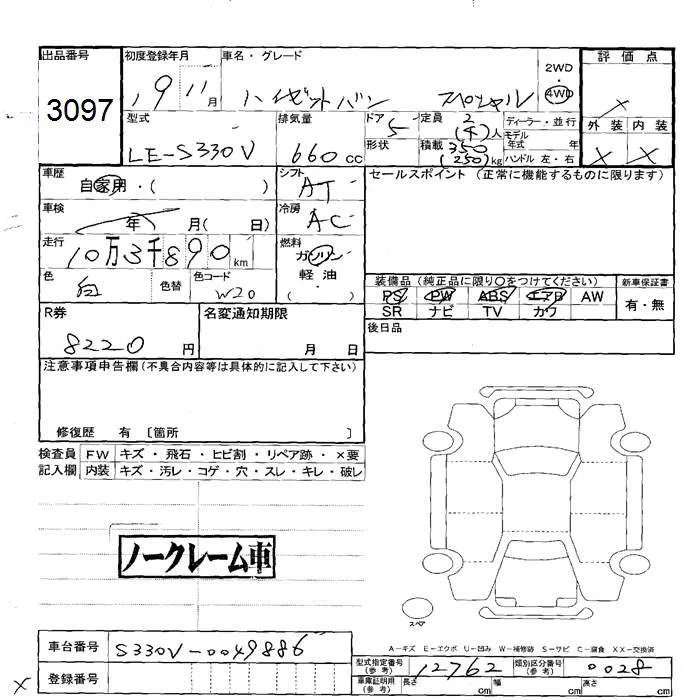 出品番号 初度登録年月 車名・グレード 2WD・4WD 評価点
3097 19 11月 ハイゼットバン スペシャル ×
型式 排気量 ドア 定員 ディーラー・並行 外装 内装
LE-S330V 660cc 5 2(4)人 モデル年式 年 × ×
形状 積載 350(250)kg ハンドル 左・右
車歴 自家用・( ) シフト AT セールスポイント (正常に機能するものに限ります)
車検 年 月( 日) 冷房 AC
走行 10万3千890km 燃料 ガソリン
軽油
( )
色 白 色替 色コード W20
装備品(純正品に限り○をつけてください) 新車保証書
PS PW ABS エアB AW 有・無
SR ナビ TV カワ
R券 8220円 名変通知期限 月 日 後日品
注意事項申告欄(不具合内容等は具体的に記入して下さい)
修復歴 有 〔箇所 〕
検査員 FW キズ・飛石・ヒビ割・リペア跡・×要
記入欄 内装 キズ・汚レ・コゲ・穴・スレ・キレ・破レ
ノークレーム車
スペア
A-キズ E-エクボ U-凹み W-補修跡 S-サビ C-腐食 XX-交換済
車台番号 S330V-0049886
型式指定番号(参考) 12762 類別区分番号(参考) 0028
× 登録番号
車庫証明用(参考) 長さ cm 幅 cm 高さ cm